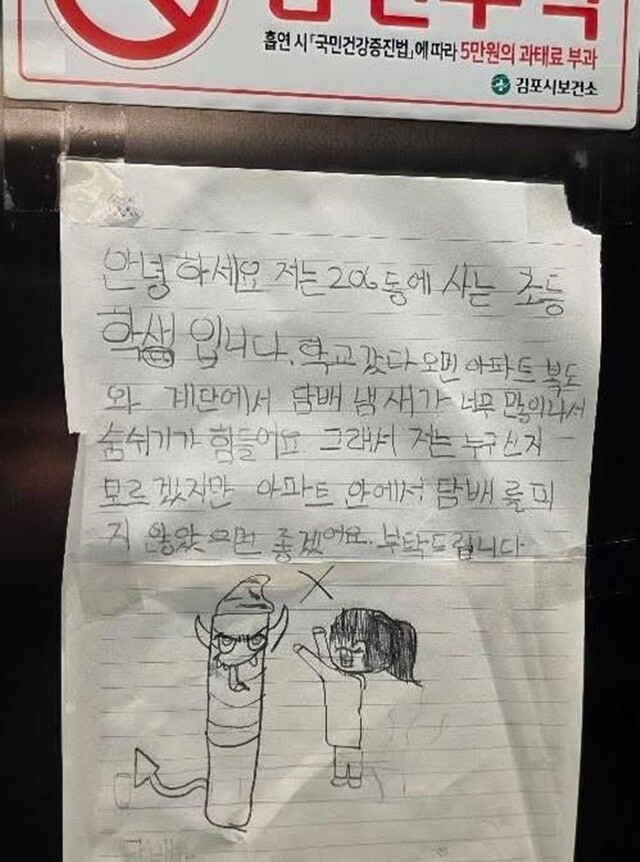 흡연 시 「국민건강증진법」에 따라 5만원의 과태료 부과
김포시보건소
안녕하세요 저는 206동에 사는 초등
학생 입니다. 학교 갔다오면 아파트 복도
와 계단에서 담배 냄새가 너무 많이나서
숨쉬기가 힘들어요 그래서 저는 누구신지
모르겠지만 아파트 안에서 담배를 피
지 않았으면 좋겠어요. 부탁드립니다